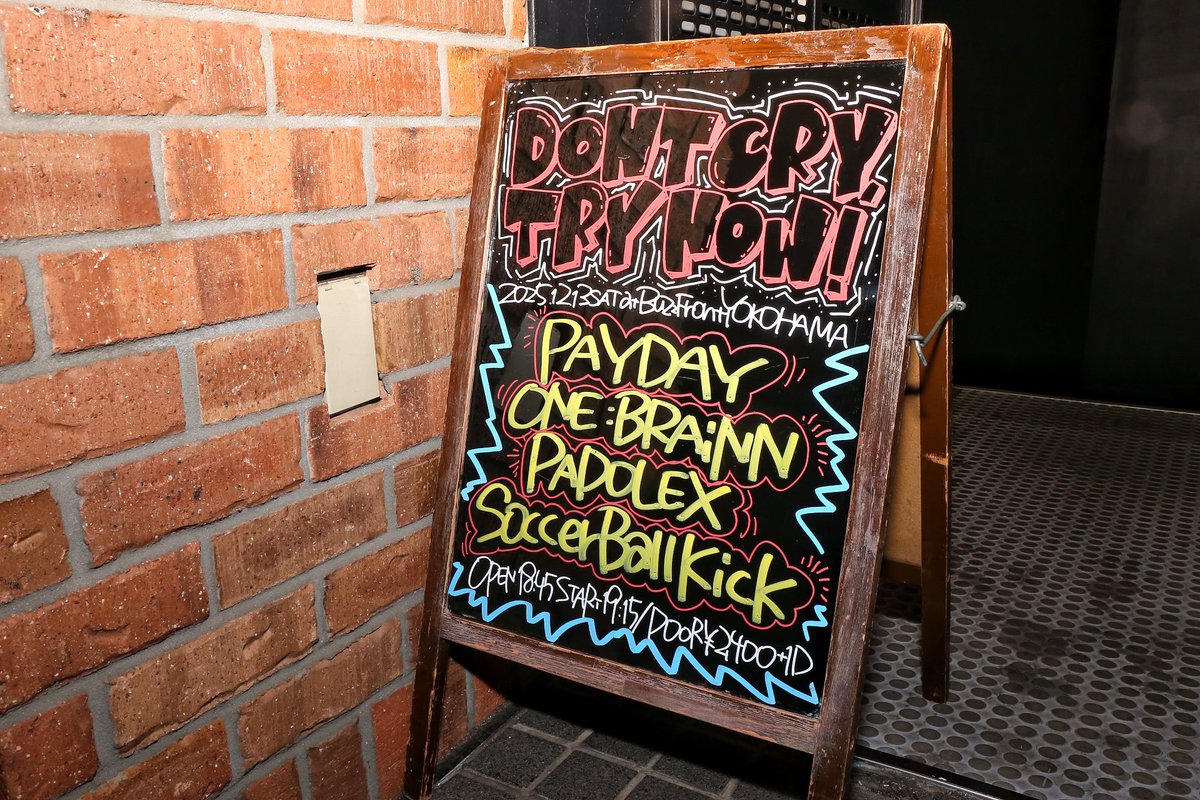 DON'T CRY,
TRY NOW!
2025.12.13 SAT at BuzzFront YOKOHAMA
PAYDAY
ONE:BRAiNN
PADOLEX
SoccerBallKick
OPEN 18:45 START 19:15/DOOR ¥2400+1D